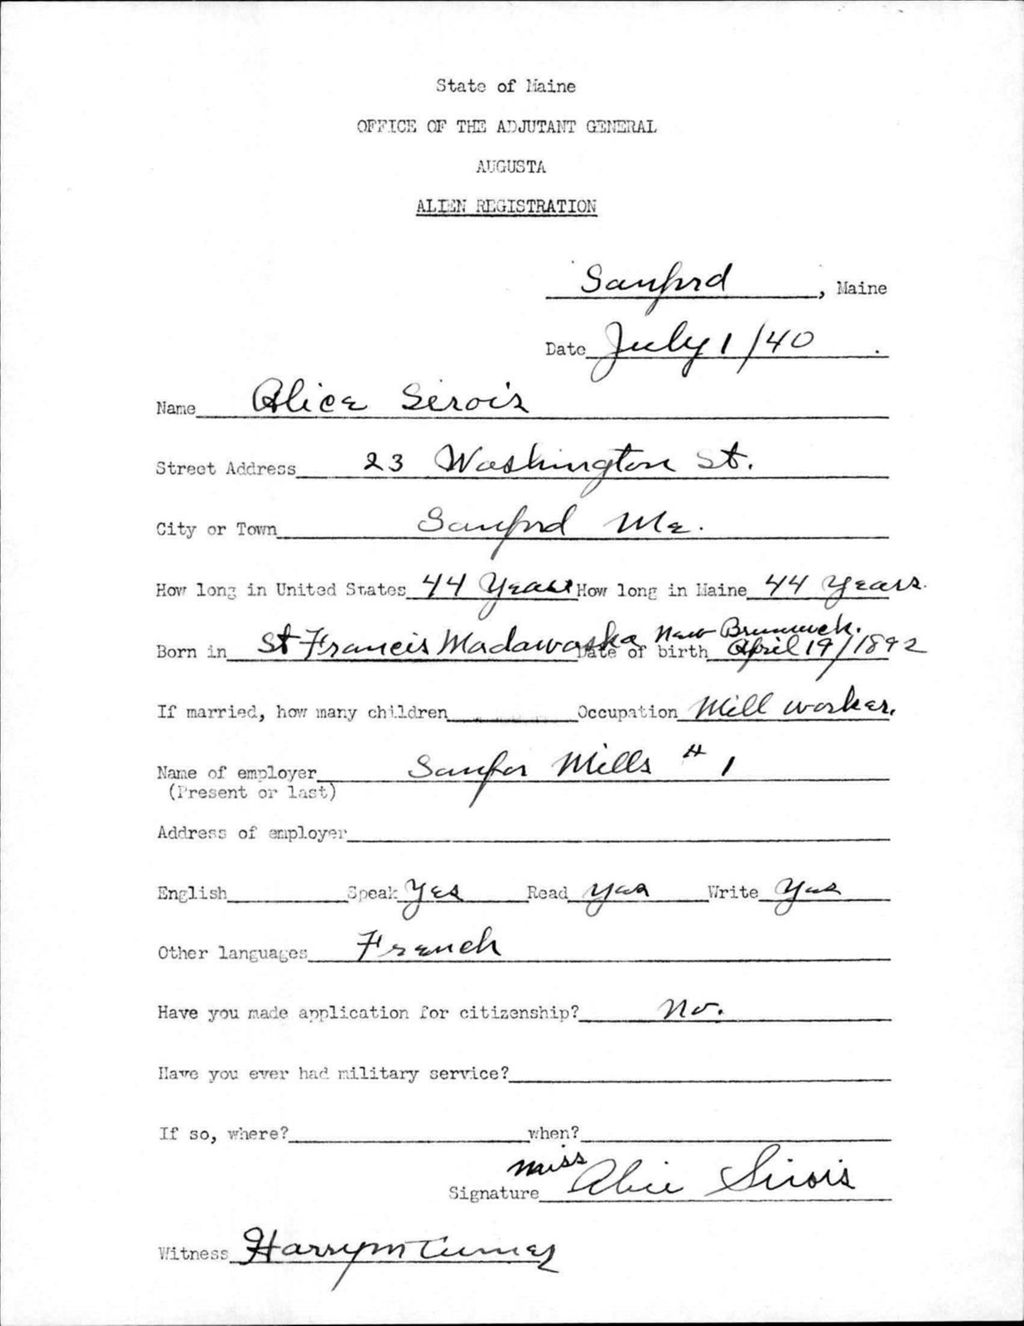 State of Maine
OFFICE OF THE ADJUTANT GENERAL
AUGUSTA
ALIEN REGISTRATION
Sanford, Maine
Date July 1/40
Name Alice Sirois
Street Address 23 Washington St.
City or Town Sanford Me.
How long in United States 44 Years How long in Maine 44 Years
Born in St Francis Madawaska New Brunswick. Date of birth April 19/1892
If married, how many children Occupation Mill worker.
Name of employer Sanfor Mills # 1
(Present or last)
Address of employer
English Speak Yes Read Yes Write Yes
Other languages French
Have you made application for citizenship? No.
Have you ever had military service?
If so, where? when?
Signature Miss Alice Sirois
Witness Harry